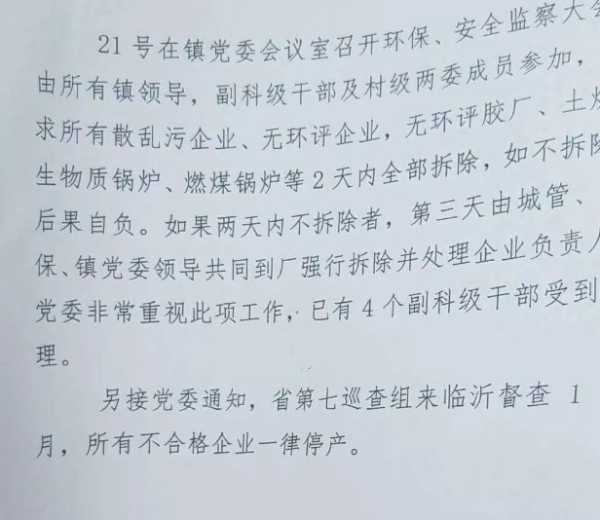 21号在镇党委会议室召开环保、安全监察大会
由所有镇领导，副科级干部及村级两委成员参加，
求所有散乱污企业、无环评企业，无环评胶厂、土
生物质锅炉、燃煤锅炉等2天内全部拆除，如不拆除
后果自负。如果两天内不拆除者，第三天由城管、
保、镇党委领导共同到厂强行拆除并处理企业负责人
党委非常重视此项工作，已有4个副科级干部受到
理。
另接党委通知，省第七巡查组来临沂督查 1
月，所有不合格企业一律停产。